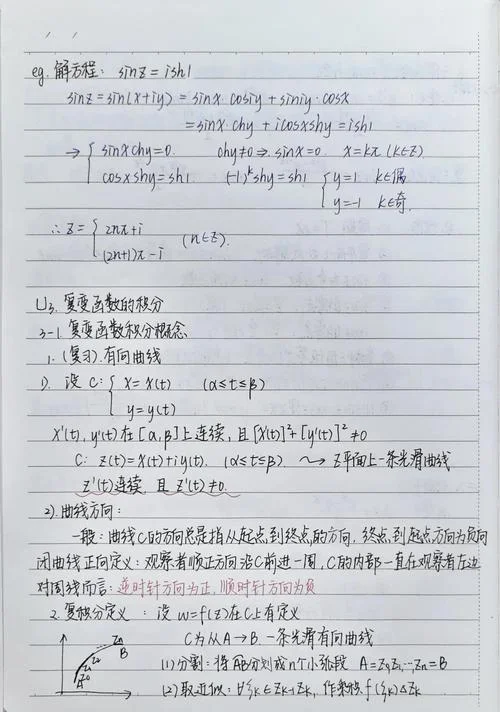 eg. 解方程: sinz = ish1
sinz = sin(x+iy) = sinx·cosiy + siniy·cosx
= sinx·chy + icosxshy = ish1
→ { sinxchy=0. chy≠0 → sinx=0. x=kπ (k∈Z).
cosxshy=sh1 (-1)^k shy=sh1 { y=1 k∈偶
y=-1 k∈奇.
∴ z = { 2nπ+i
(2n+1)π-i (n∈Z).
U3. 复变函数的积分
3-1. 复变函数积分概念
1. (复习). 有向曲线
1). 设 C: { x=x(t) (α≤t≤β)
y=y(t)
x'(t), y'(t) 在 [α,β] 上连续, 且 [x'(t)]²+[y'(t)]²≠0
C: z(t)=x(t)+iy(t). (α≤t≤β). ⟿ z平面上一条光滑曲线
z'(t)连续, 且 z'(t)≠0.
2). 曲线方向:
一般: 曲线C的方向总是指从起点,到终点,的方向, 终点,到起点,方向为负向
闭曲线正向定义: 观察者顺正方向沿C前进一周, C的内部一直在观察者左边
对周线而言: 逆时针方向为正, 顺时针方向为负
2. 复积分定义: 设 w=f(z)在C上有定义
C为从A→B. 一条光滑有向曲线
(1)分割: 将AB分划成n个小弧段 A=z₀,z₁,…,zn=B
(2)取近似: ∀ζk∈zk-1zk, 作乘积 f(ζk)Δzk
zn
B
z2
z1
z0
A